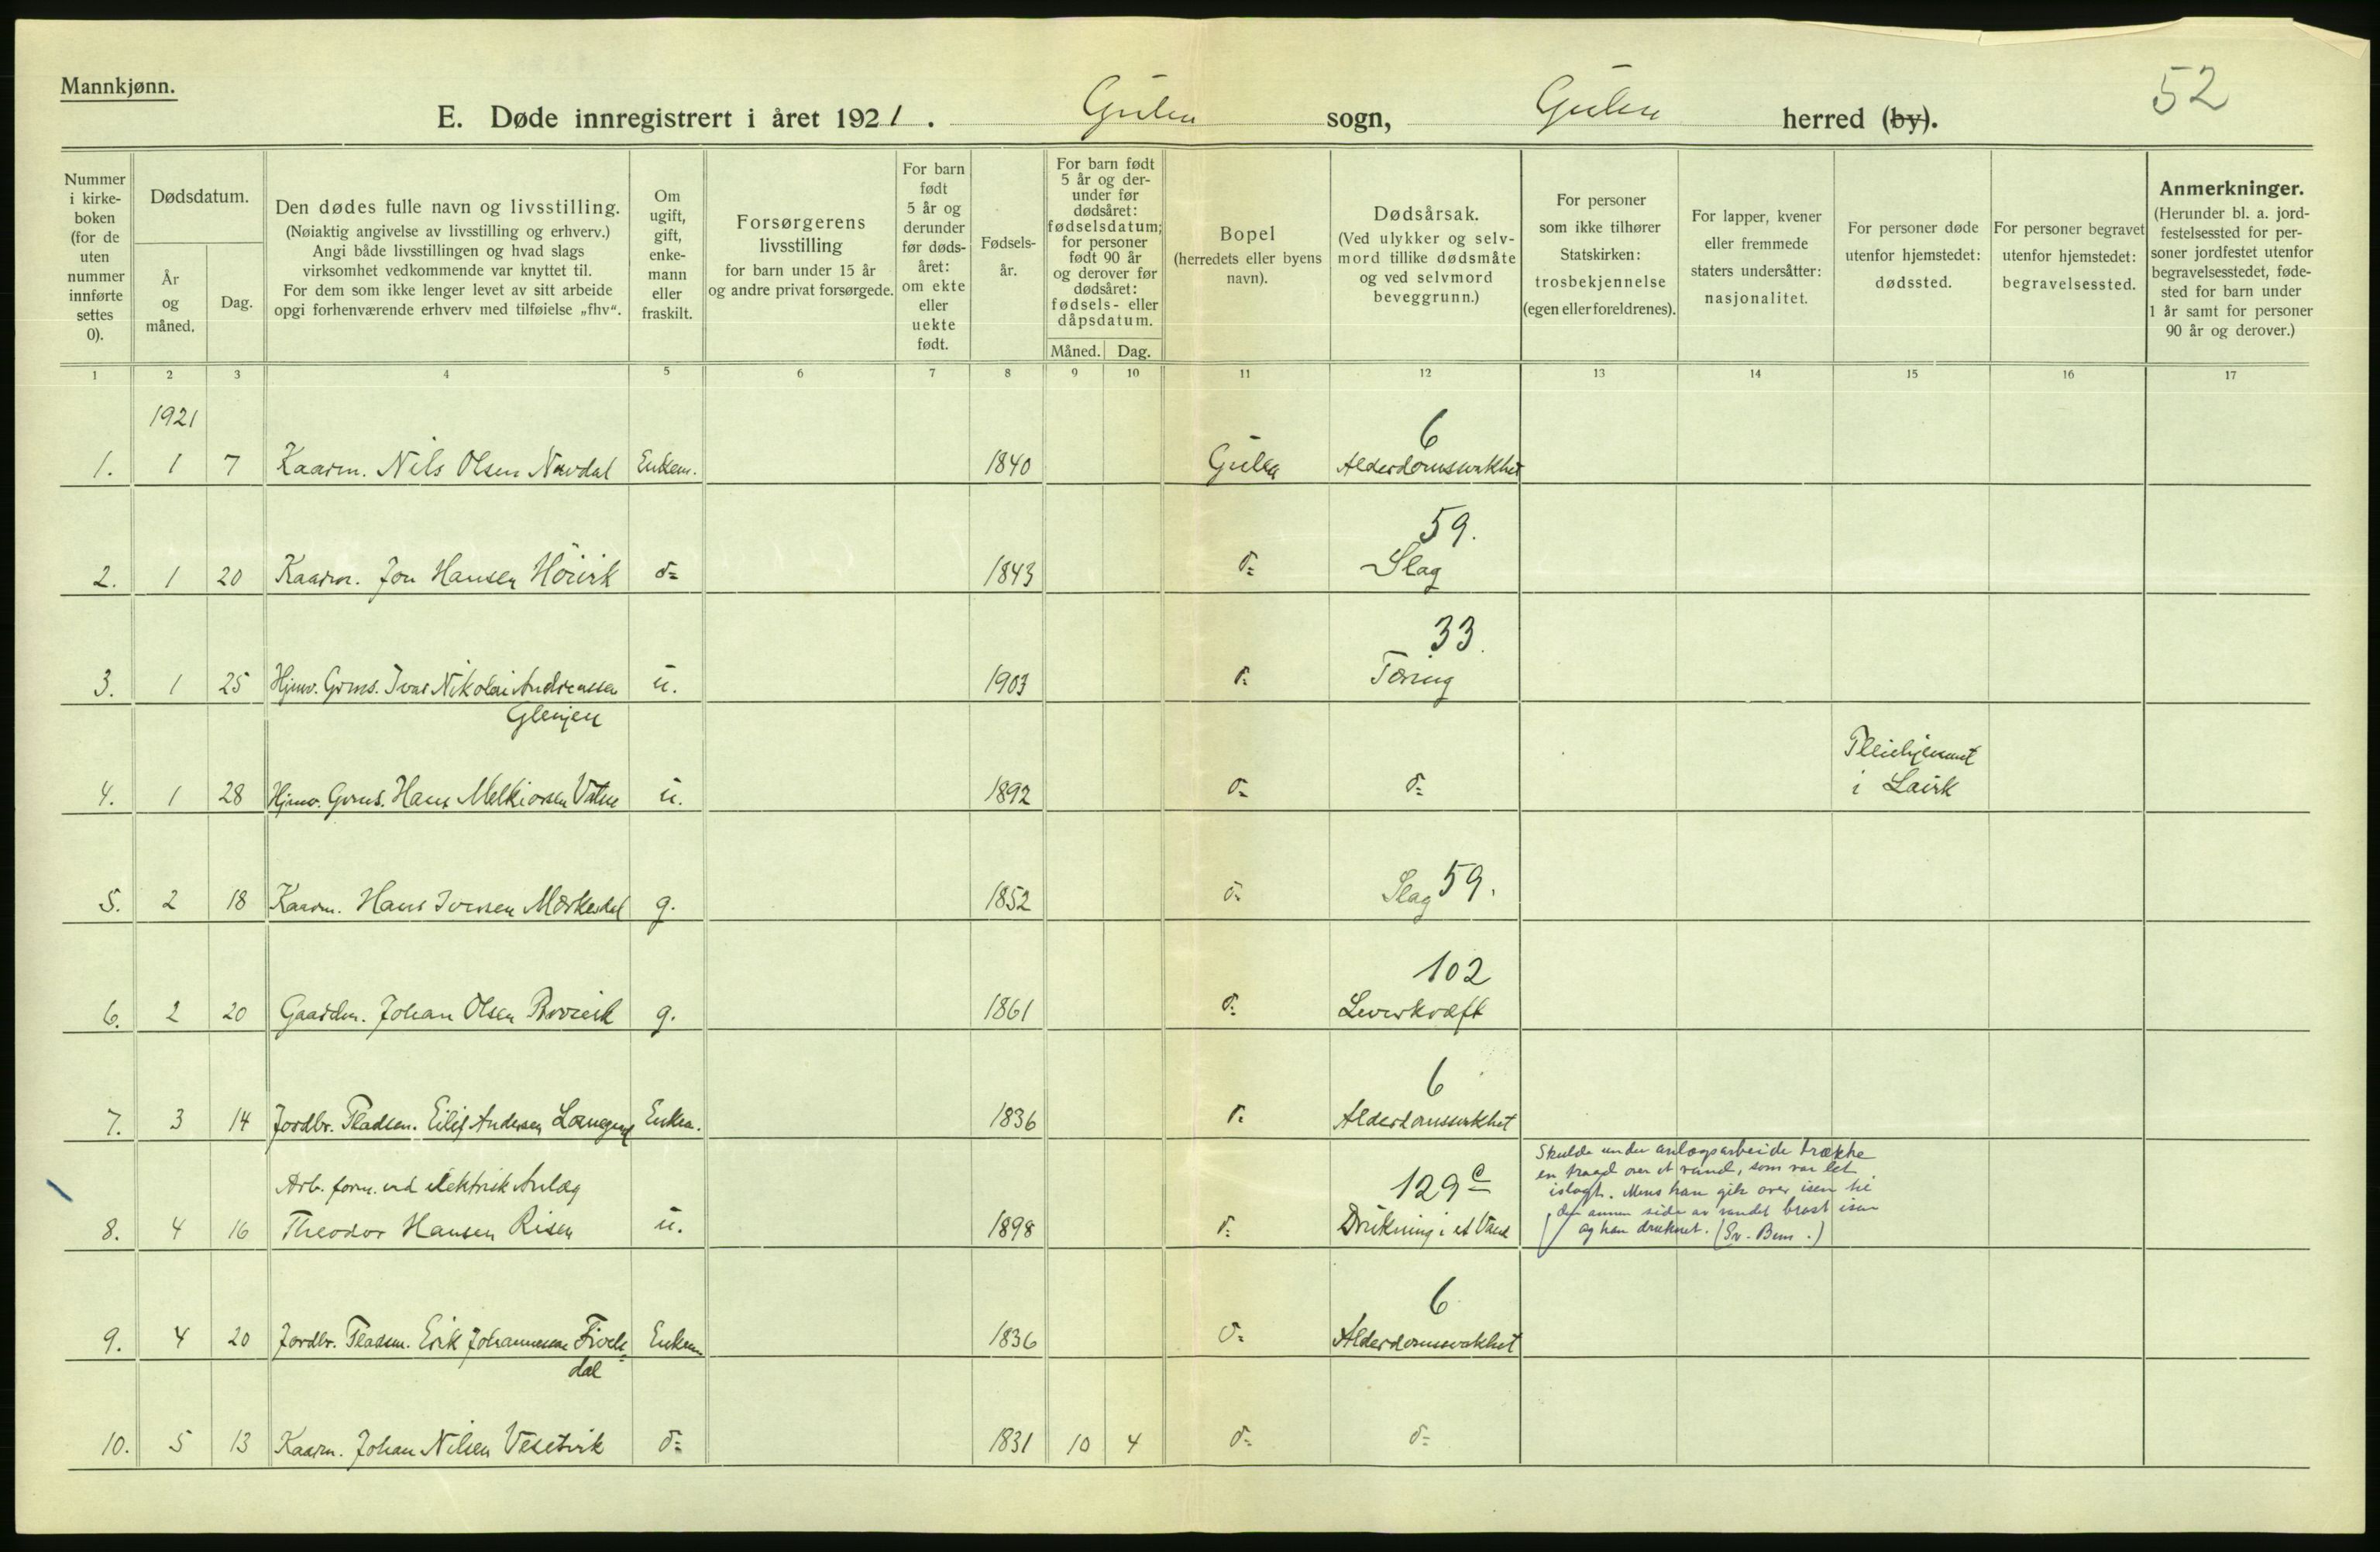 Mannkjønn.
52
E. Døde innregistrert i året 1921. Gulen sogn, Gulen herred (by).
Nummer i kirke-boken (for de uten nummer innførte settes 0).
Dødsdatum.
År og måned.
Dag.
Den dødes fulle navn og livsstilling.
(Nøiaktig angivelse av livsstilling og erhverv.)
Angi både livsstillingen og hvad slags
virksomhet vedkommende var knyttet til.
For dem som ikke lenger levet av sitt arbeide
opgi forhenværende erhverv med tilføielse „fhv“.
Om ugift, gift, enke-mann eller fraskilt.
Forsørgerens livsstilling
for barn under 15 år
og andre privat forsørgede.
For barn født 5 år og derunder før døds-året: om ekte eller uekte født.
Fødsels-år.
For barn født 5 år og der-under før dødsåret: fødselsdatum; for personer født 90 år og derover før dødsåret: fødsels- eller dåpsdatum.
Måned. Dag.
Bopel
(herredets eller byens navn).
Dødsårsak.
(Ved ulykker og selv-mord tillike dødsmåte og ved selvmord beveggrunn.)
For personer som ikke tilhører Statskirken: trosbekjennelse (egen eller foreldrenes).
For lapper, kvener eller fremmede staters undersåtter: nasjonalitet.
For personer døde utenfor hjemstedet: dødssted.
For personer begravet utenfor hjemstedet: begravelsessted.
Anmerkninger.
(Herunder bl. a. jord-festelsessted for per-soner jordfestet utenfor begravelsesstedet,føde-sted for barn under 1 år samt for personer 90 år og derover.)
1 2 3 4 5 6 7 8 9 10 11 12 13 14 15 16 17
1921
6
1. 1 7 Kaarm. Nils Olsen Nordal Enkem. 1840 Gulen Alderdomssvakhet
59.
2. 1 20 Kaarm. Jon Hansen Høivik do 1843 do Slag
33.
3. 1 25 Hjmv. Grms. Ivar Nikolai Andreassen u. 1903 do Tæring
Glenjen
Pleiehjemmet
4. 1 28 Hjmv. Grms. Hans Melkiorsen Vatne u. 1892 do do i Lavik
5. 2 18 Kaarm. Hans Iversen Mørkedal g. 1852 do Slag 59.
102
6. 2 20 Gaardm. Johan Olsen g. 1861 do Leverkræft
6
7. 3 14 Jordbr. Pladsm. Eilif Andersen Enkem. 1836 do Alderdomssvakhet
Arb. form. ved elektrisk Anlæg
129 c
8. 4 16 Theodor Hansen Risen u. 1898 do Drukning i et Vand
Skulde under anlægsarbeide trække
en traad over et vand, som var let
islagt. Mens han gik over isen til
den annen side av vandet brast isen
og han druknet. (Sv. Bem.)
6
9. 4 20 Jordbr. Pladsm. Erik Johannessen Fivels- Enkem. 1836 do Alderdomssvakhet
dal
10. 5 13 Kaarm. Johan Nilsen Vesetvik do 1831 10 4 do do